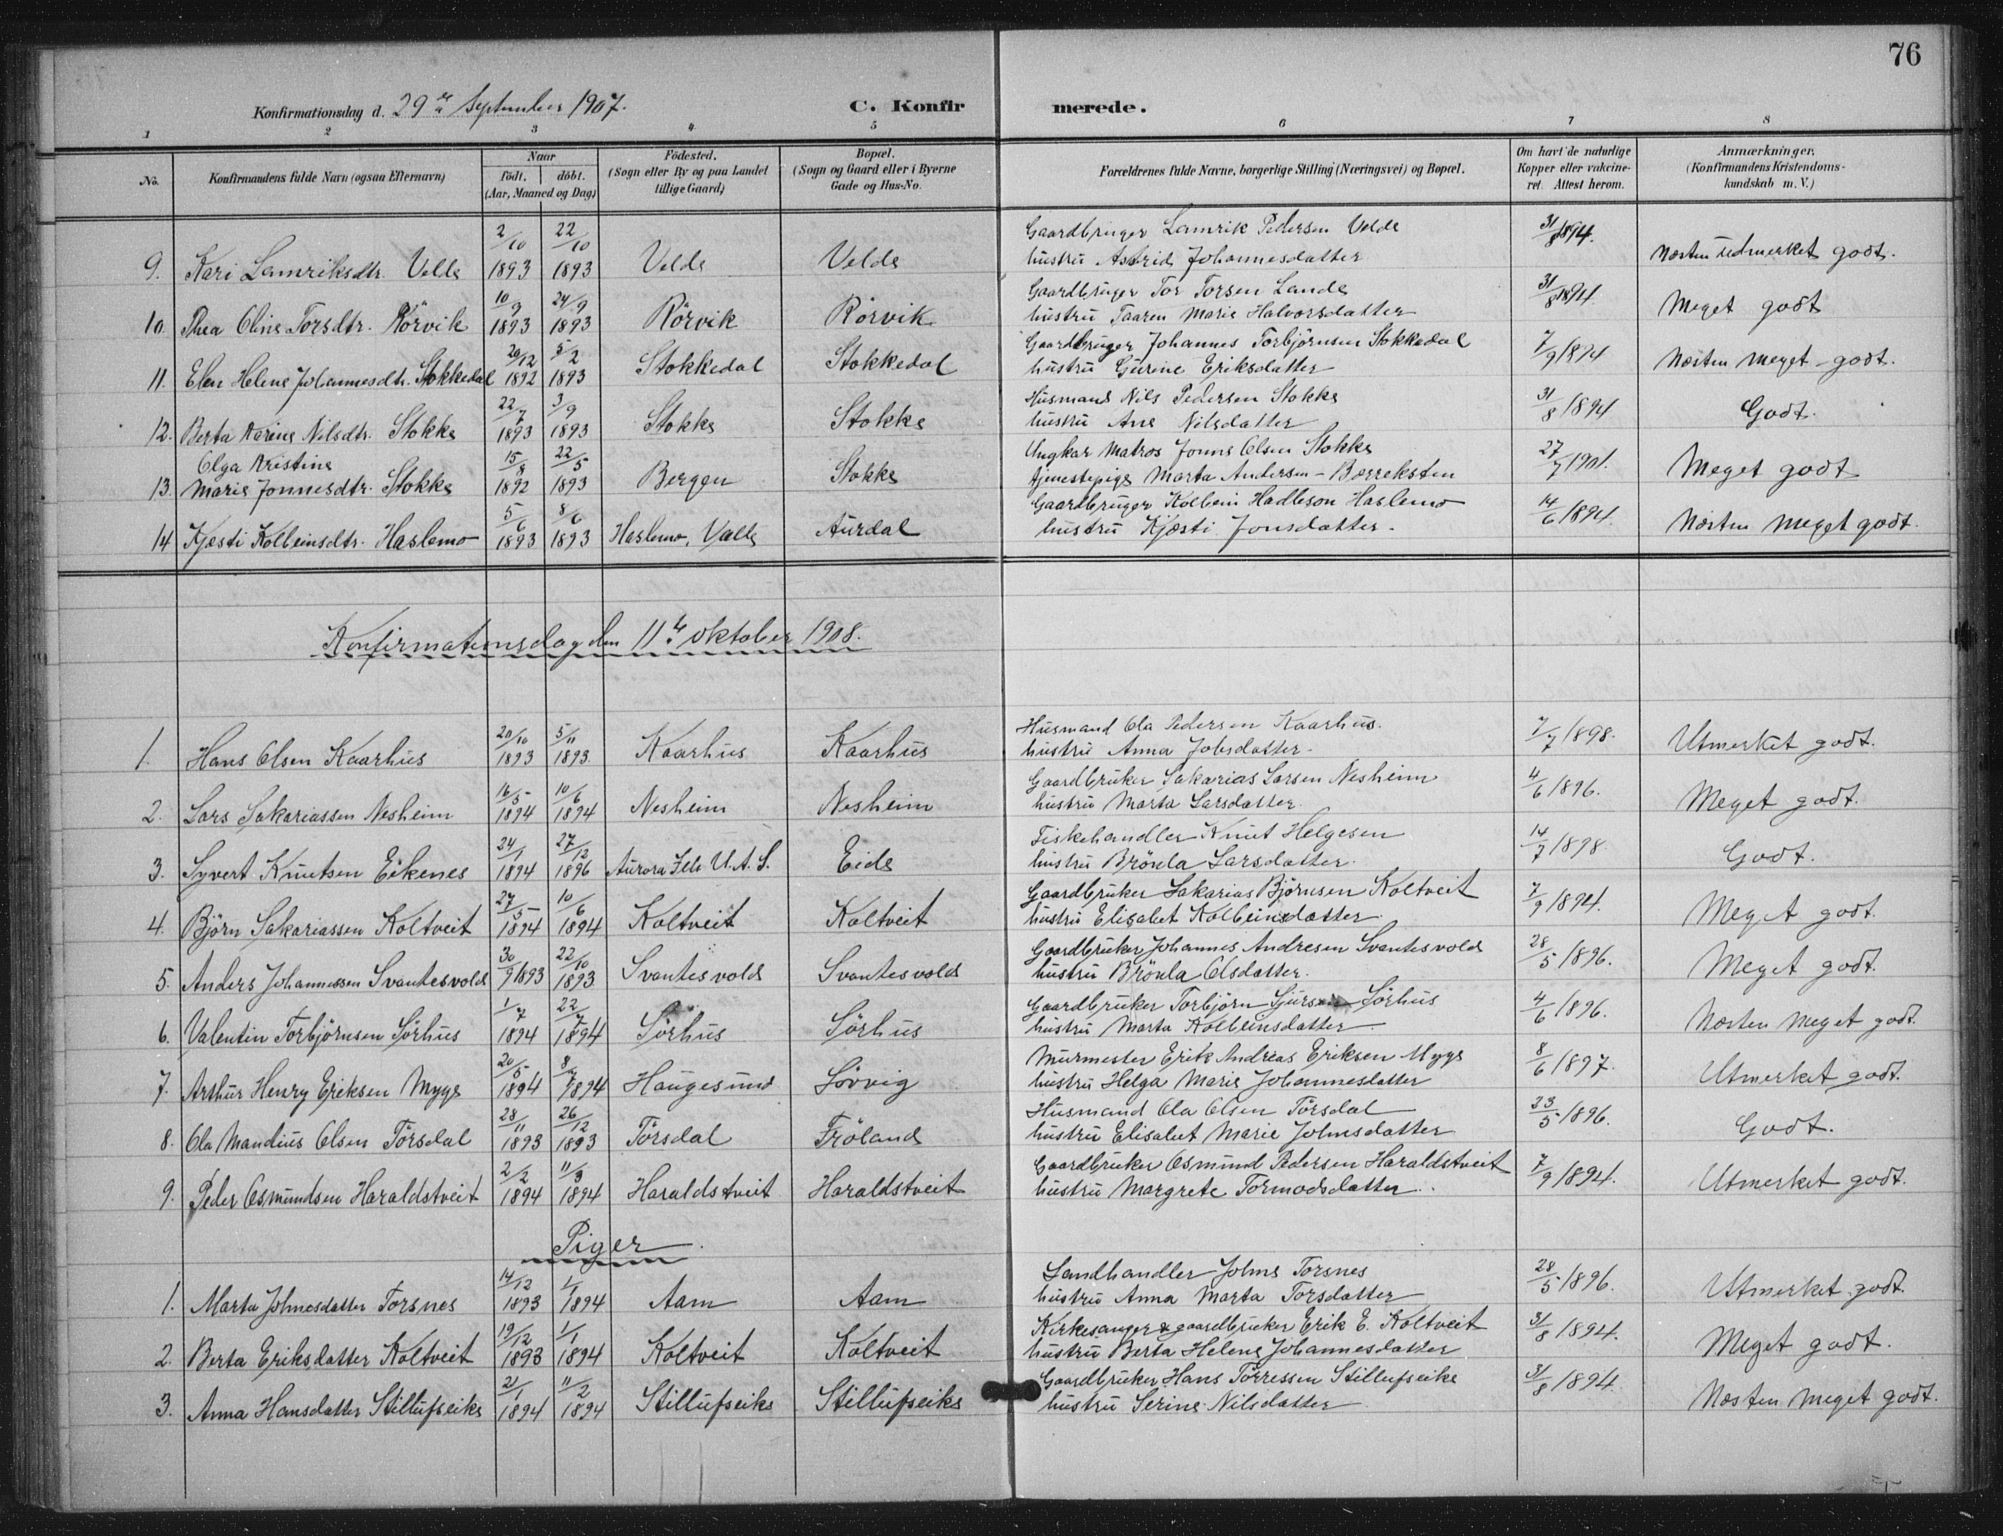 76
Konfirmationsdag d. 29de September 1907. C. Konfirmerede.
1 2 3 4 5 6 7 8
No. Konfirmandens fulde Navn (ogsaa Efternavn) Naar født. døbt. (Aar, Maaned og Dag) Fødested. (Sogn eller By og paa Landet tillige Gaard) Bopæl. (Sogn og Gaard eller i Byerne Gade og Hus-No. Forældrenes fulde Navne, borgerlige Stilling (Næringsvei) og Bopæl. Om havt de naturlige Kopper eller vakcineret. Attest herom. Anmærkninger. (Konfirmandens Kristendomskundskab m. V.)
9. Kari Lamriksdtr. Velle 2/10 1893 22/10 1893 Velde Velde Gaardbruger Lamrik Pedersen Velde
hustru Astrid Johannesdatter 31/8 1894. Næsten udmerket godt.
10. Thea Oline Torsdtr. Rörvik 10/9 1893 24/9 1893 Rörvik Rörvik Gaardbruger Tor Torsen Lande
hustru Taaren Marie Halvorsdatter 31/8 1894. Meget godt
11. Elen Helene Johannesdtr. Stokkedal 20/12 1892 5/2 1893 Stokkedal Stokkedal Gaardbruger Johannes Torbjörnsen Stokkedal
hustru Gurine Eriksdatter 7/9 1894 Næsten meget godt.
12. Berta Karine Nilsdtr. Stokke 22/7 1893 3/9 1893 Stokke Stokke Husmand Nils Pedersen Stokke
hustru Ane Nilsdatter 31/8 1894 Godt.
13. Olga Kristine
Marie Jonnesdtr. Stokke 15/8 1892 22/5 1893 Bergen Stokke Ungkar Matros Jonne Olsen Stokke
tjenestepige Marta Andersen - Børreksten 27/7 1901. Meget godt
14 Kjæsti Kolbeinsdtr. Haslemo 5/6 1893 8/6 1893 Haslemo, Valle Aurdal Gaardbruger Kolbein Hadleson Haslemo
hustru Kjæsti Jonsdatter. 14/6 1894. Næsten meget godt.
Konfirmationsdag den 11te oktober 1908.
1. Hans Olsen Kaarhus 20/10 1893 5/11 1893. Kaarhus Kaarhus Husmand Ola Pedersen Kaarhus.
hustru Anna Jobsdatter. 7/7 1898. Utmerket godt.
2. Lars Sakariassen Nesheim 16/5 1894 10/6 1894 Nesheim Nesheim Gaardbruker Sakarias Larsen Nesheim
hustru Marta Larsdatter. 4/6 1896. Meget godt.
3. Syvert Knutsen Eikenes 24/1 1894 27/12 1896 Aurora Ills U.A.S. Eide Fiskehandler Knut Helgesen
hustru Brönla Larsdatter. 14/7 1898. Godt.
4. Björn Sakariassen Koltveit 27/5 1894 10/6 1894 Koltveit Koltveit Gaardbruker Sakarias Björnsen Koltveit
hustru Elisabet Kolbeinsdatter. 7/9 1894. Meget godt.
5. Anders Johannessen Svantesvold 30/9 1893 22/10 1893. Svantesvold Svantesvold Gaardbruker Johannes Andresen Svantesvold
hustru Brönla Olsdatter. 28/5 1896. Meget godt.
6. Valentin Torbjörnsen Sörhus 1/7 1894 22/7 1894 Sörhus Sörhus Gaardbruker Torbjörn Sjursen Sörhus
hustru Marta Kolbeinsdatter 4/6 1896. Næsten meget godt.
7. Arthur Henry Eriksen Myge 20/5 1894 8/7 1894 Haugesund Lövvig Murmester Erik Andreas Eriksen Myge
hustru Helga Marie Johannesdatter 8/6 1897. Utmerket godt.
8. Ola Mandius Olsen Törsdal 28/11 1893 26/12 1893 Törsdal Fröland Husmand Ola Olsen Törsdal
hustru Elisabet Marie Johnsdatter 23/5 1896. Godt.
9. Peder Osmundsen Haraldstveit 2/2 1894 11/3 1894 Haraldstveit Haraldstveit Gaardbruker Osmund Pedersen Haraldstveit
hustru Margrete Tormodsdatter. 7/9 1894. Utmerket godt.
Piger.
1. Marta Johnesdatter Torsnes 14/12 1893 1/1 1894 Aam Aam Landhandler Johns Torsnes
hustru Anna Marta Torsdatter 28/5 1896. Utmerket godt.
2. Berta Eriksdatter Koltveit 19/12 1893 1/1 1894 Koltveit Koltveit Kirkesanger & gaardbruker Erik E. Koltveit
hustru Berta Helene Johannesdatter 31/8 1894. Meget godt.
3. Anna Hansdatter Stillufseike 21/1 1894 11/2 1894 Stillufseike Stillufseike Gaardbruker Hans Törressen Stillufseike
hustru Serine Nilsdatter 31/8 1894. Næsten meget godt.